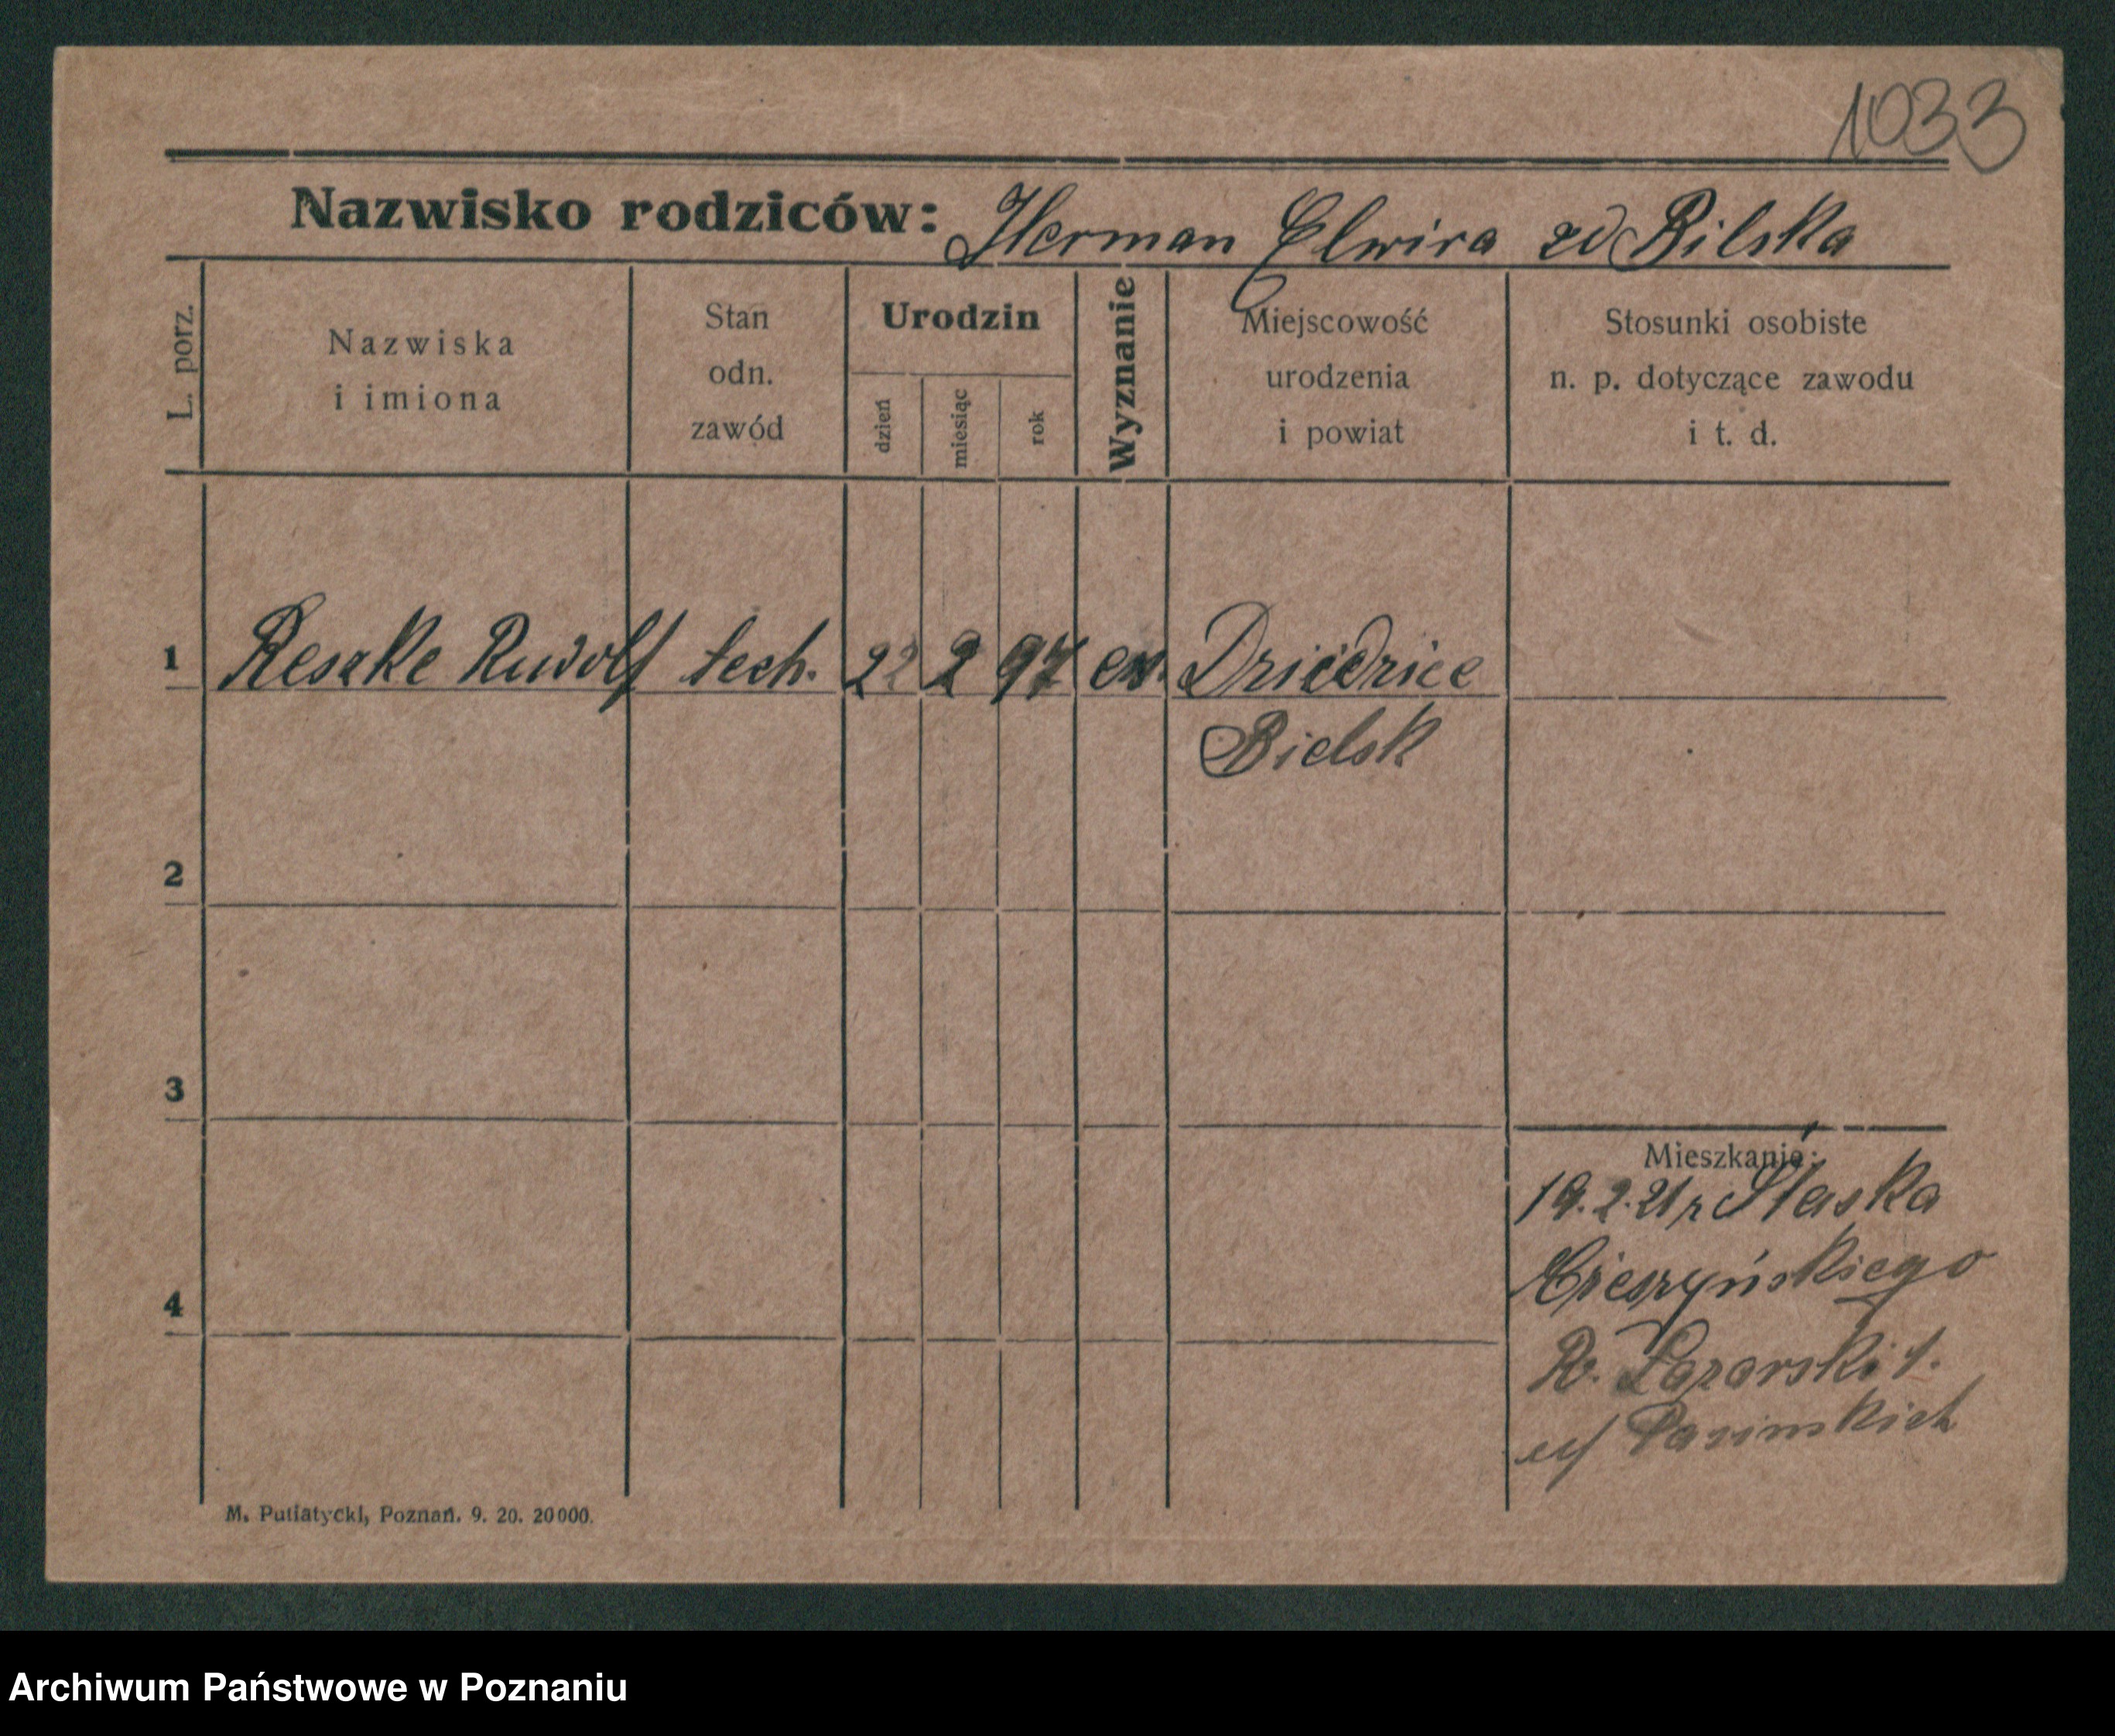 1033
Nazwisko rodziców: Herman Elwira zd Bilska
L. porz.
Nazwiska
i imiona
Stan
odn.
zawód
Urodzin
dzień
miesiąc
rok
Wyznanie
Miejscowość
urodzenia
i powiat
Stosunki osobiste
n. p. dotyczące zawodu
i t. d.
1 Reszke Rudolf tech. 22 2 97 ew. Dziedzice
Bielsk
2
3
4
Mieszkanie:
19.2.21 r Slaska
Cieszyńskiego
R. Lazarski 1.
M. Putiatycki, Poznań. 9. 20. 20000.
Archiwum Państwowe w Poznaniu